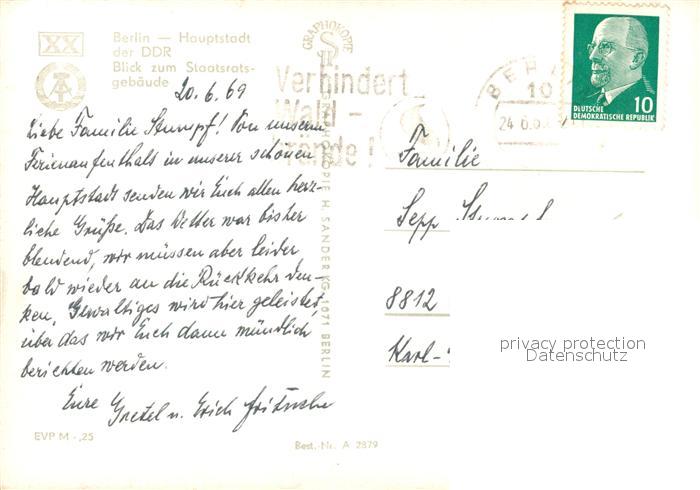 XX
Berlin — Hauptstadt
der DDR
Blick zum Staatsrats-
gebäude
20.6.69
Liebe Familie Stumpf! Von unserm
Ferienaufenthalt in unserer schönen
Hauptstadt senden wir Euch allen herz-
liche Grüße. Das Wetter war bisher
blendend, wir müssen aber leider
bald wieder an die Rückkehr den-
ken. Gewaltiges wird hier geleistet,
über das wir Euch dann mündlich
berichten werden.
Eure Gretel u. Erich Fritzsche
EVP M -,25
GRAPHOKOPIE
GRAPHOKOPIE H. SANDER KG, 1071 BERLIN
Best.-Nr. A 2879
Verhindert
Wald-
brände!
BERLIN
10
24.6.69
10
DEUTSCHE
DEMOKRATISCHE REPUBLIK
Familie
Sepp
8812
Karl-
privacy protection
Datenschutz